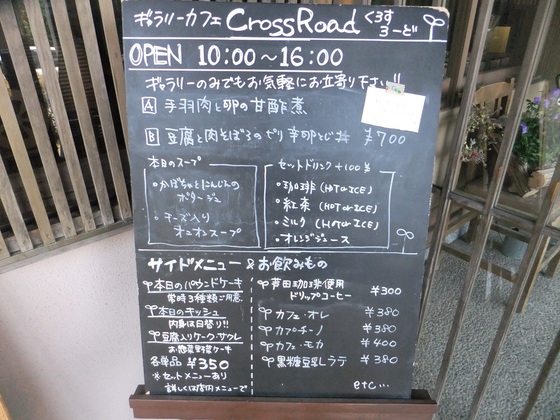 ギャラリーカフェ CrossRoad くろすろーど
OPEN 10:00〜16:00
ギャラリーのみでもお気軽にお立寄り下さい!!
A 手羽肉と卵の甘酢煮
B 豆腐と肉そぼろのピリ辛卵とじ丼 ¥700
本日のスープ
・かぼちゃとにんじんのポタージュ
・チーズ入りオニオンスープ
セットドリンク +100円
・珈琲 (HOT or ICE)
・紅茶 (HOT or ICE)
・ミルク (HOT or ICE)
・オレンジジュース
サイドメニュー & お飲みもの
本日のパウンドケーキ
常時3種類ご用意
本日のキッシュ
内容は日替り!!
豆腐入りケーク・サクレ
お惣菜野菜ケーキ
各単品 ¥350
※セットメニューあり
詳しくは店内メニューで
芦田珈琲使用
ドリップコーヒー ¥300
カフェ・オレ ¥380
カプチーノ ¥380
カフェ・モカ ¥400
黒糖豆乳ラテ ¥380
etc...